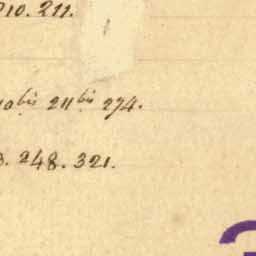 210. 211.
10bis 211bis 274.
3. 248. 321.